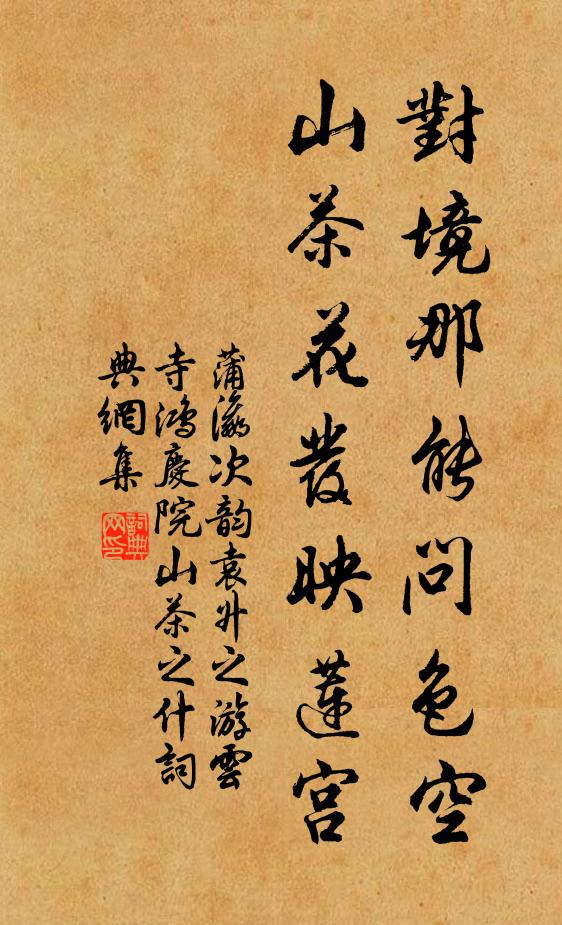 對境那能問色空
山茶花發映蓮宮
蒲瀛次韵袁升之游雲
寺鴻慶院山茶之什詞
典網集
詞典
网印